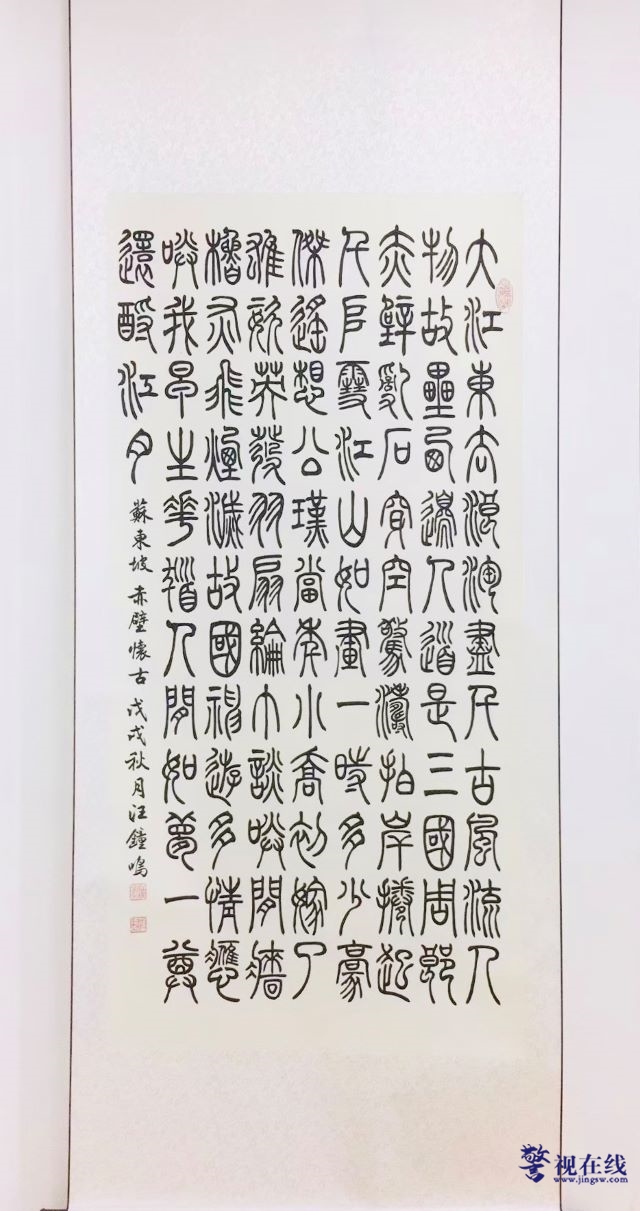 大江東去浪淘盡千古風流人
物故壘西邊人道是三國周郎
赤壁亂石穿空驚濤拍岸捲起
千堆雪江山如畫一時多少豪
傑遙想公瑾當年小喬初嫁了
雄姿英發羽扇綸巾談笑間檣
櫓灰飛煙滅故國神遊多情應
笑我早生華髮人間如夢一尊
還酹江月
蘇東坡 赤壁懷古 戊戌秋月汪鐘鳴
警视在线
www.jingsw.com